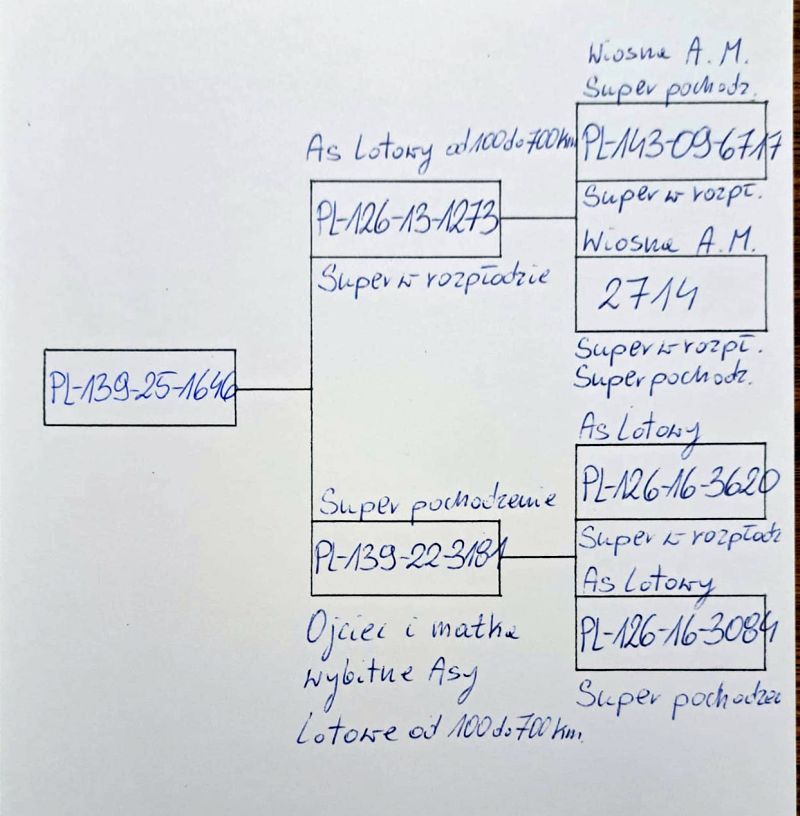 Wiosna A. M.
Super pochodz.
As Lotowy od 100 do 700 km
PL-143-09-6717
PL-126-13-1273
Super w rozpł.
Super w rozpłodzie
Wiosna A. M.
2714
Super w rozpł.
Super pochodz.
PL-139-25-1646
As Lotowy
PL-126-16-3620
Super pochodzenie
Super w rozpłodz
PL-139-22-3181
As Lotowy
PL-126-16-3084
Ojciec i matka
wybitne Asy
Lotowe od 100 do 700 km.
Super pochodzen